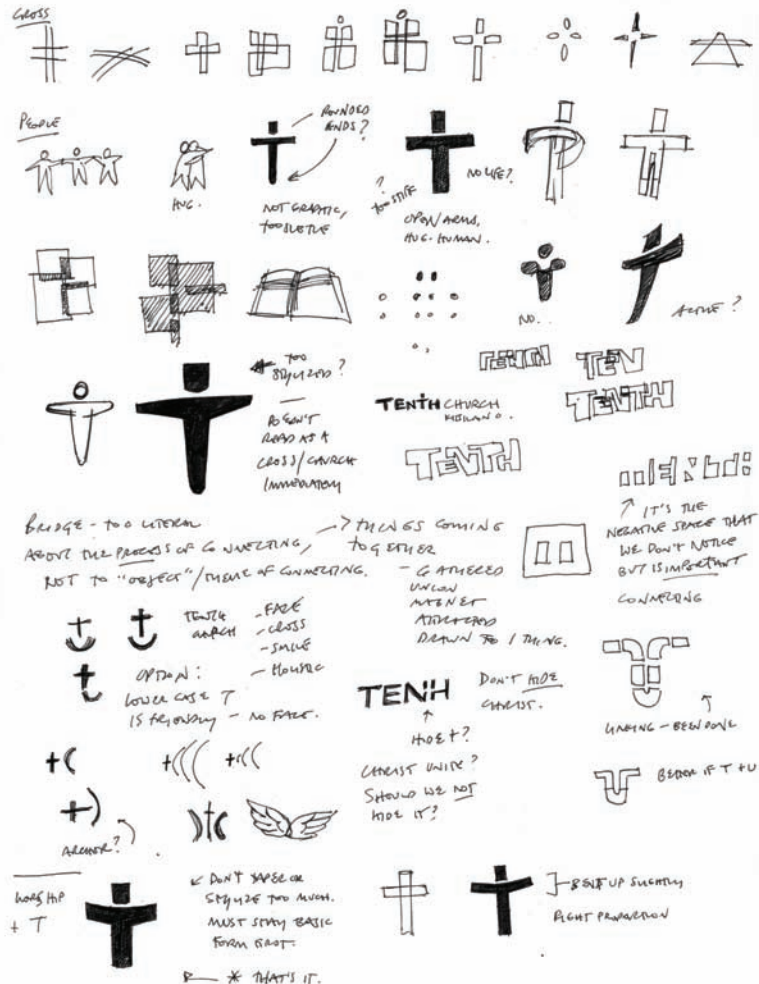 CROSS
PEOPLE
ROUNDED
ENDS?
HUG.
NOT GRAPHIC,
TOO SUBTLE
?
TOO STIFF
NO LIFE?
OPEN ARMS,
HUG-HUMAN.
NO..
ACTIVE?
TOO
STYLIZED?
DOESN'T
READ AS A
CROSS/CHURCH
IMMEDIATELY
TENTH
TEN
TENTH
TENTH CHURCH
TENTH
IT'S THE
NEGATIVE SPACE THAT
WE DON'T NOTICE
BUT IS IMPORTANT
CONNECTING
BRIDGE - TOO LITERAL
ABOUT THE PROCESS OF CONNECTING,
NOT TO "OBJECT"/THEME OF CONNECTING.
? THINGS COMING
TOGETHER
- GATHERED
UNION
MAGNET
ATTRACTED
DRAWN TO 1 THING.
TENTH
CHURCH
- FACE
- CROSS
- SMILE
- HOLISTIC
OPTION:
LOWER CASE T
IS FRIENDLY - NO FACE.
TENH
DON'T HIDE
CHRIST.
HIDE t?
CHRIST UNITE?
SHOULD WE NOT
HIDE IT?
LINKING - BEEN DONE
BETTER IF T + U
ARCHER?
WORSHIP
+ T
DON'T TAPER OR
STYLIZE TOO MUCH.
MUST STAY BASIC
FORM FIRST.
* THAT'S IT.
BENT UP SLIGHTLY
RIGHT PROPORTION